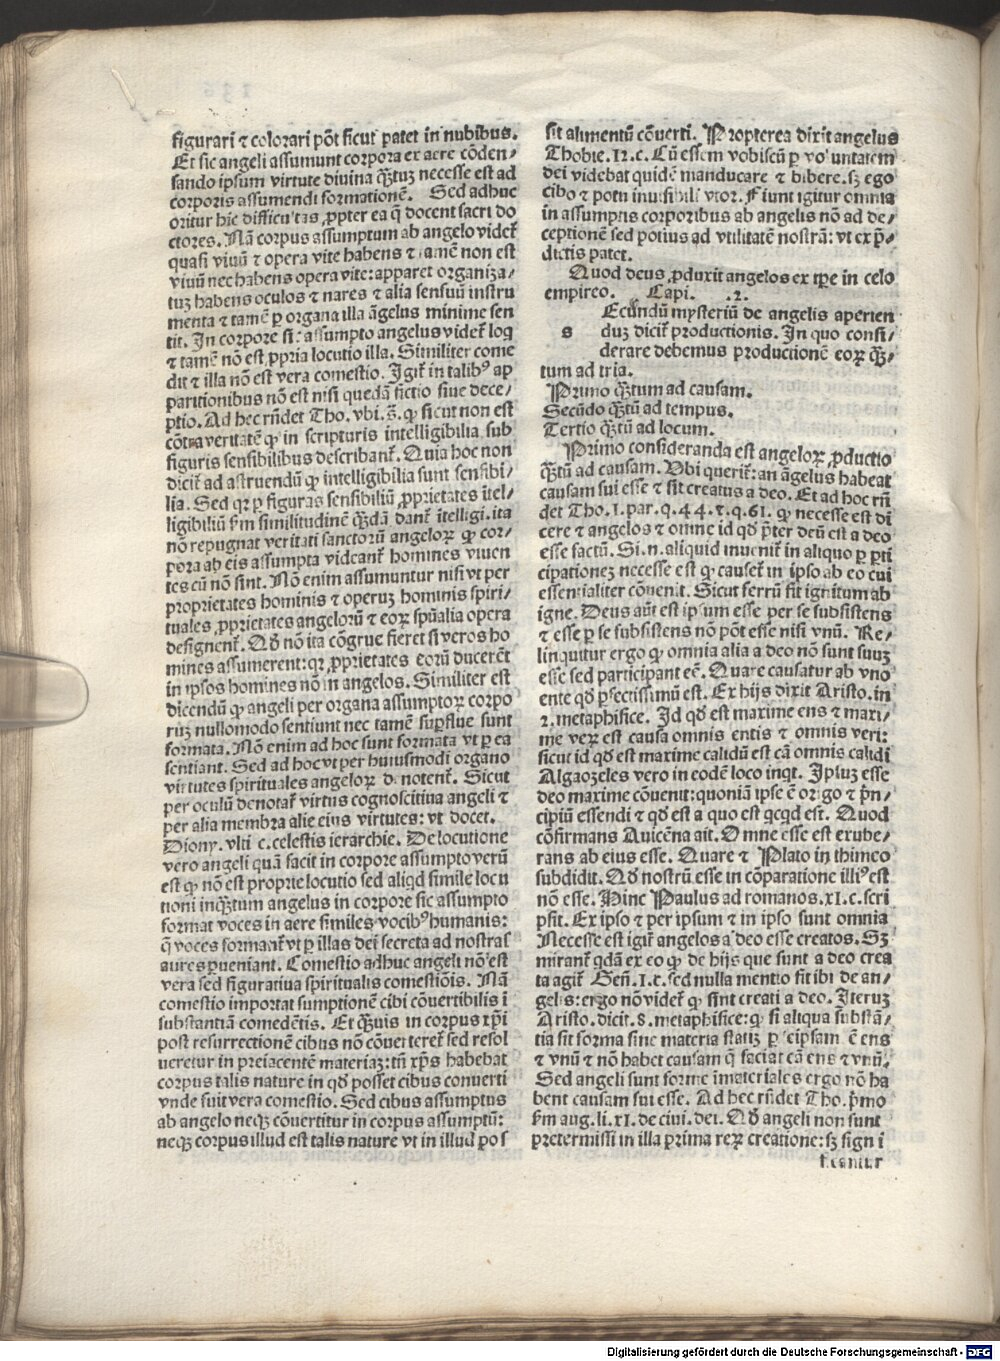 figurari ⁊ colorari põt sicut patet in nubibus.
Et sic angeli assumunt corpora ex aere cõden⸗
sando ipsum virtute diuina q̃ꝫtuꝫ necesse est ad
corporis assumendi formationẽ. Sed adhuc
oritur hic difficultas ꝓpter ea q̃ docent sacri do
ctores. Nã corpus assumptum ab angelo videt̃
quasi viuũ ⁊ opera vite habens ⁊ tamẽ non est
viuũ nec habens opera vite: apparet organiza⸗
tuꝫ habens oculos ⁊ nares ⁊ alia sensuũ instru
menta ⁊ tamẽ ꝑ organa illa ãgelus minime sen
tit. In corpore sic assumpto angelus videt̃ loq̃
⁊ tamẽ nõ est ꝓpria locutio illa. Similiter come
dit ⁊ illa nõ est vera comestio. Igit̃ in talibꝰ ap
paritionibus nõ est nisi quedã fictio siue dece⸗
ptio. Ad hec rñdet Tho. vbi.s̃. ꝙ sicut non est
cõtra veritatẽ ꝙ in scripturis intelligibilia sub
figuris sensibilibus describant̃. Quia hoc non
dicit̃ ad astruendũ ꝙ intelligibilia sunt sensibi⸗
lia. Sed qꝛ ꝑ figuras sensibiliũ ꝓprietates ĩtel⸗
ligibiliũ ẜm similitudinẽ q̃ꝫdã dant̃ ĩtelligi. ita
nõ repugnat veritati sanctorũ angeloꝝ ꝙ cor⸗
pora ab eis assumpta videant̃ homines viuen
tes cũ nõ sint. Nõ enim assumuntur nisi vt per
proprietates hominis ⁊ operuꝫ hominis spiri⸗
tuales ꝓprietates angelorũ ⁊ eoꝝ spũalia opera
designent̃. Qđ nõ ita cõgrue fieret si veros ho
mines assumerent: qꝛ ꝓprietates eorũ ducerẽt
in ipsos homines nõ in angelos. Similiter est
dicendũ ꝙ angeli per organa assumptoꝝ corpo
ruꝫ nullomodo sentiunt nec tamẽ suꝑflue sunt
formata. Nõ enim ad hoc sunt formata vt ꝑ ea
sentiant. Sed ad hoc vt per huiusmodi organa
virtutes spirituales angeloꝝ denotent̃. Sicut
per oculũ denotat̃ virtus cognoscitiua angeli ⁊
per alia membra alie eius virtutes: vt docet
Diony. vlti c. celestis ierarchie. De locutione
vero angeli quã facit in corpore assumpto verũ
est ꝙ nõ est proprie locutio sed aliqd simile locu
tioni inq̃ꝫtum angelus in corpore sic assumpto
format voces in aere similes vocibꝰ humanis:
q̃ voces formant̃ vt ꝑ illas dei secreta ad nostras
aures ꝑueniant. Comestio adhuc angeli nõ est
vera sed figuratiua spiritualis comestiõis. Nã
comestio importat sumptionẽ cibi cõuertibilis ĩ
substantiã comedẽtis. Et q̃ꝫuis in corpus xp̃i
post resurrectionẽ cibus nõ cõuerteret̃ sed resol
ueretur in preiacentẽ materiaꝫ: tñ xp̃s habebat
corpus talis nature in qđ posset cibus conuerti
vnde fuit vera comestio. Sed cibus assumptus
ab angelo neqꝫ cõuertitur in corpus assumptũ:
neqꝫ corpus illud est talis nature vt in illud pos
sit alimentũ cõuerti. Propterea dixit angelus
Thobie.12.c. Cũ essem vobiscũ ꝑ voluntatem
dei videbar quidẽ manducare ⁊ bibere. sꝫ ego
cibo ⁊ potu inuisibili vtor. Fiunt igitur omnia
in assumptis corporibus ab angelis nõ ad de⸗
ceptionẽ sed potius ad vtilitatẽ nostrã: vt ex p̃⸗
dictis patet.
Quod deus ꝓduxit angelos ex tp̃e in celo
empireo. Capi. .2.
Ecundũ mysteriũ de angelis aperien
s duꝫ dicit̃ productionis. In quo consi⸗
derare debemus productionẽ eoꝝ q̃ꝫ⸗
tum ad tria.
Primo q̃ꝫtum ad causam.
Secũdo q̃ꝫtũ ad tempus.
Tertio q̃ꝫtũ ad locum.
Primo consideranda est angeloꝝ ꝓductio
q̃ꝫtũ ad causam. Ubi querit̃: an ãgelus habeat
causam sui esse ⁊ sit creatus a deo. Et ad hoc rñ
det Tho.1.par.q.44.⁊.q.61. ꝙ necesse est di
cere ⁊ angelos ⁊ omne id qđ p̃ter deũ est a deo
esse factũ. Si.n. aliquid inuenit̃ in aliquo ꝑ ꝑti
cipationeꝫ necesse est ꝙ causet̃ in ipso ab eo cui
essentialiter cõuenit. Sicut ferrũ fit ignitum ab
igne. Deus aũt est ipsum esse per se subsistens
⁊ esse ꝑ se subsistens nõ põt esse nisi vnũ. Re⸗
linquitur ergo ꝙ omnia alia a deo nõ sunt suuꝫ
esse sed participant eẽ. Quare causatur ab vno
ente qđ ꝑfectissimũ est. Ex hijs dixit Aristo. in
2.metaphisice. Id qđ est maxime ens ⁊ maxi⸗
me veꝝ est causa omnis entis ⁊ omnis veri:
sicut id qđ est maxime calidũ est cã omnis calidi
Algaozeles vero in codẽ loco inqt. Ipsuꝫ esse
deo maxime cõuenit: quoniã ipse ẽ origo ⁊ p̃n⸗
cipiũ essendi ⁊ qđ est a quo est qcqd est. Quod
cõfirmans Auicẽna ait. Omne esse est exube⸗
rans ab eius esse. Quare ⁊ Plato in thimeo
subdidit. Qđ nostrũ esse in cõparatione illiꝰ est
nõ esse. Hinc Paulus ad romanos.xi.c. scri
psit. Ex ipso ⁊ per ipsum ⁊ in ipso sunt omnia
Necesse est igit̃ angelos a deo esse creatos. Sꝫ
mirant̃ qdã ex eo ꝙ de hijs que sunt a deo crea
ta agit̃ Geñ.1.c. sed nulla mentio fit ibi de an⸗
gelis: ergo nõ videt̃ ꝙ sint creati a deo. Iteruꝫ
Aristo. dicit.8.metaphisice: ꝙ si aliqua substã⸗
tia sit forma sine materia statiꝫ ꝑ seipsam ẽ ens
⁊ vnũ ⁊ nõ habet causam q̃ faciat eã ens ⁊ vnũ.
Sed angeli sunt forme ĩmateriales ergo nõ ha
bent causam sui esse. Ad hec rñdet Tho. p̃mo
ẜm aug.li.xi. de ciui. dei. Qđ angeli non sunt
pretermissi in illa prima reꝝ creatione: sꝫ sign i
ficantur
Digitalisierung gefördert durch die Deutsche Forschungsgemeinschaft - DFG